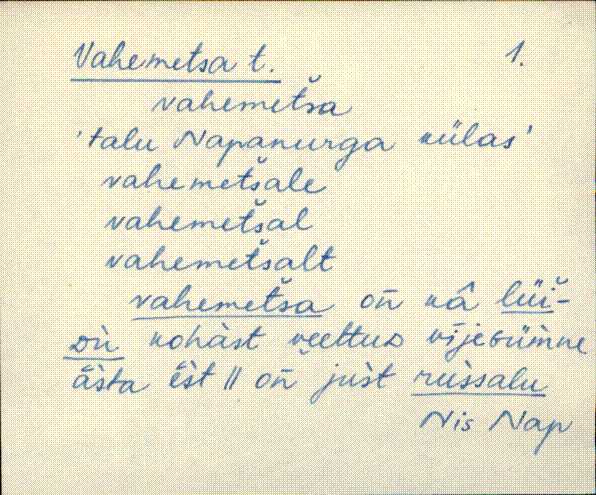 Vahemetsa t. 1.
vahemet̆sa
'talu Napanurga külas'
vahemet̆sale
vahemet̆sal
vahemet̆salt
vahemet̆sa on̄ kâ lüi-
kohàst veettuᴅ
ä̀sta ḗst || on̄ just rüssalu
Nis Nap